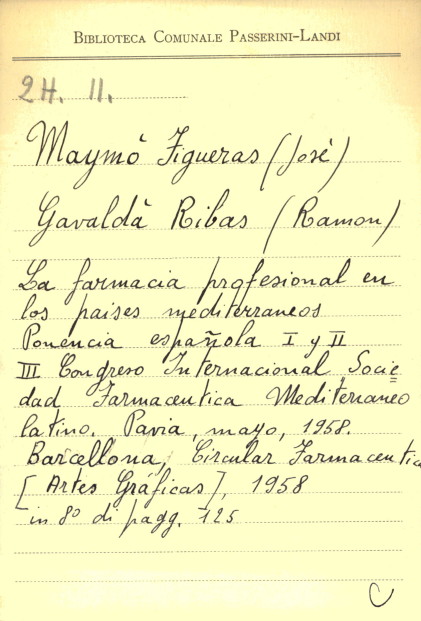 BIBLIOTECA COMUNALE PASSERINI-LANDI
2H. 11.
Maymó Figueras (José)
Gavaldà Ribas (Ramon)
La farmacia profesional en
los paises mediterraneos
Ponencia española I y II
III Congreso Internacional Socie=
dad Farmaceutica Mediterraneo
latino. Pavia, mayo, 1958.
Barcellona, Circular Farmaceutica
[Artes Gráficas], 1958
in 8º di pagg. 125
C